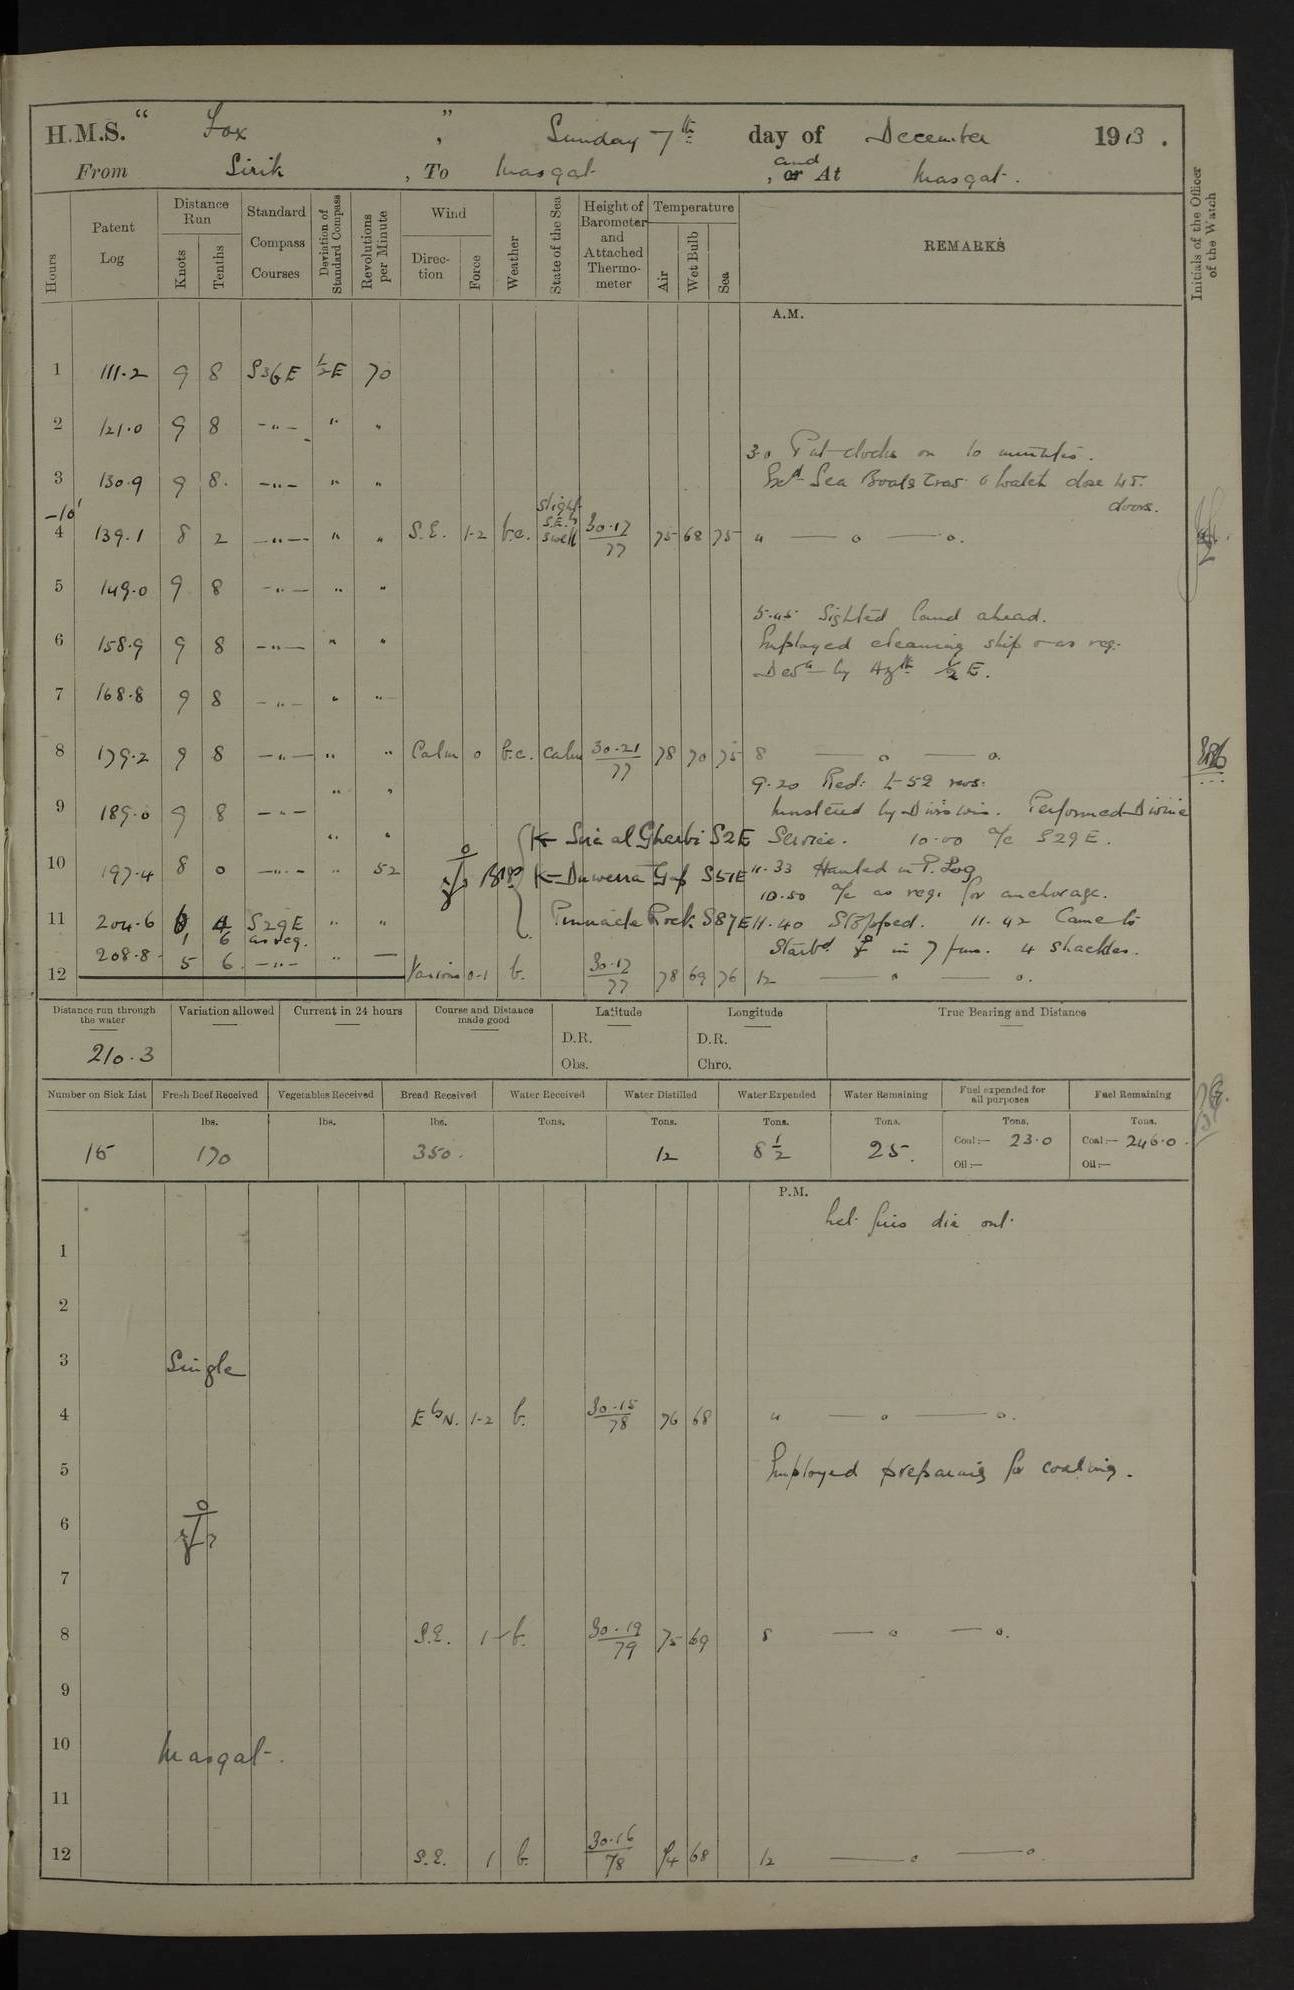 H.M.S. “ Fox ” , Sunday 7th day of December 1913 .
From Sirik , To Masqat , and or At Masqat .
Hours
Patent Log
Distance Run
Knots
Tenths
Standard Compass Courses
Deviation of Standard Compass
Revolutions per Minute
Wind
Direction
Force
Weather
State of the Sea
Height of Barometer and Attached Thermometer
Temperature
Air
Wet Bulb
Sea
REMARKS
Initials of the Officer of the Watch
A.M.
1 111.2 9 8 S36E ½E 70
2 121.0 9 8 –„– „ „
3.0 Put clocks on 10 minutes.
3 130.9 9 8. –„– „ „
Sea Boats Crew & watch close W.T. doors.
–10'
4 139.1 8 2 –„– „ „ S.E. 1-2 b.c. slight S.E.ly swell 30.17/77 75 68 75 4 — o — o.
5 149.0 9 8 –„– „ „
5.45 Sighted land ahead.
6 158.9 9 8 –„– „ „ Employed cleaning ship & as req.
Devn by Azth ½ E.
7 168.8 9 8 –„– „ „
8 179.2 9 8 –„– „ „ Calm 0 b.c. calm 30.21/77 78 70 75 8 — o — o.
9.20 Red: to 52 revs.
9 189.0 9 8 –„– „ „ Mustered by Divisions. Performed Divine
Service. 10.00 a/c S29E.
10 197.4 8 0 –„– „ 52
S2E
S51E 11.33 Hauled in P. Log
10.50 a/c as req. for anchorage.
11 204.6 6 4 S29E „ „
Pinnacle Rock S87E 11.40 Stopped. 11.42 Came to
208.8 5 6 as req.
Starbd in 7 fms. 4 shackles.
12 –„– „ — Various 0-1 b. 30.17/77 78 69 76 12 — o — o.
Distance run through the water
210.3
Variation allowed
Current in 24 hours
Course and Distance made good
Latitude
D.R.
Obs.
Longitude
D.R.
Chro.
True Bearing and Distance
Number on Sick List
Fresh Beef Received
Vegetables Received
Bread Received
Water Received
Water Distilled
Water Expended
Water Remaining
Fuel expended for all purposes
Fuel Remaining
lbs. lbs. lbs. Tons. Tons. Tons. Tons. Tons. Tons.
15 170 350. 12 8½ 25. Coal:— 23.0 Coal:— 246.0.
Oil:— Oil:—
P.M.
Let fires die out.
1
2
3 Single
4 E by N. 1-2 b. 30.15/78 76 68 4 — o — o.
5 Employed preparing for coaling.
6
7
8 S.E. 1 b. 30.19/79 75 69 8 — o — o.
9
10 Masqat.
11
12 S.E. 1 b. 30.16/78 74 68 12 — o — o.